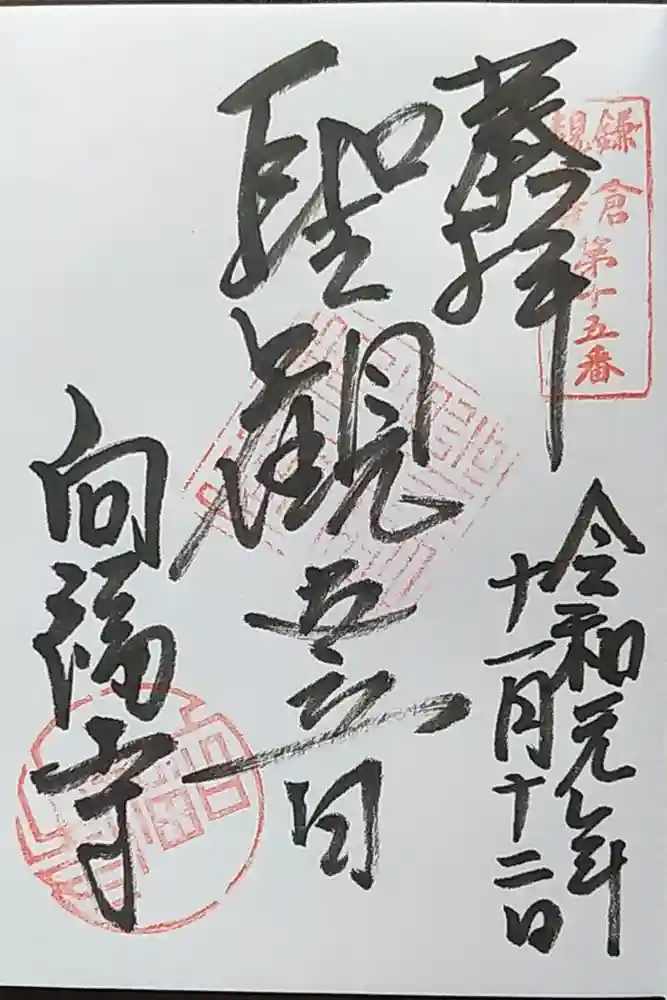 鎌倉
観音
第十五番
奉拝
令和元年
十一月十二日
聖観世音
向福寺